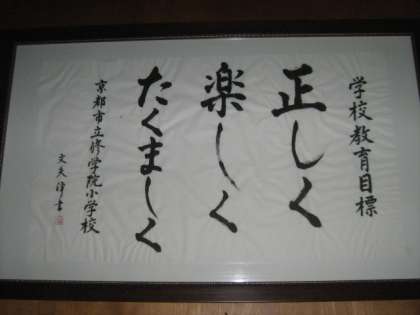 学校教育目標
正しく
楽しく
たくましく
京都市立修学院小学校